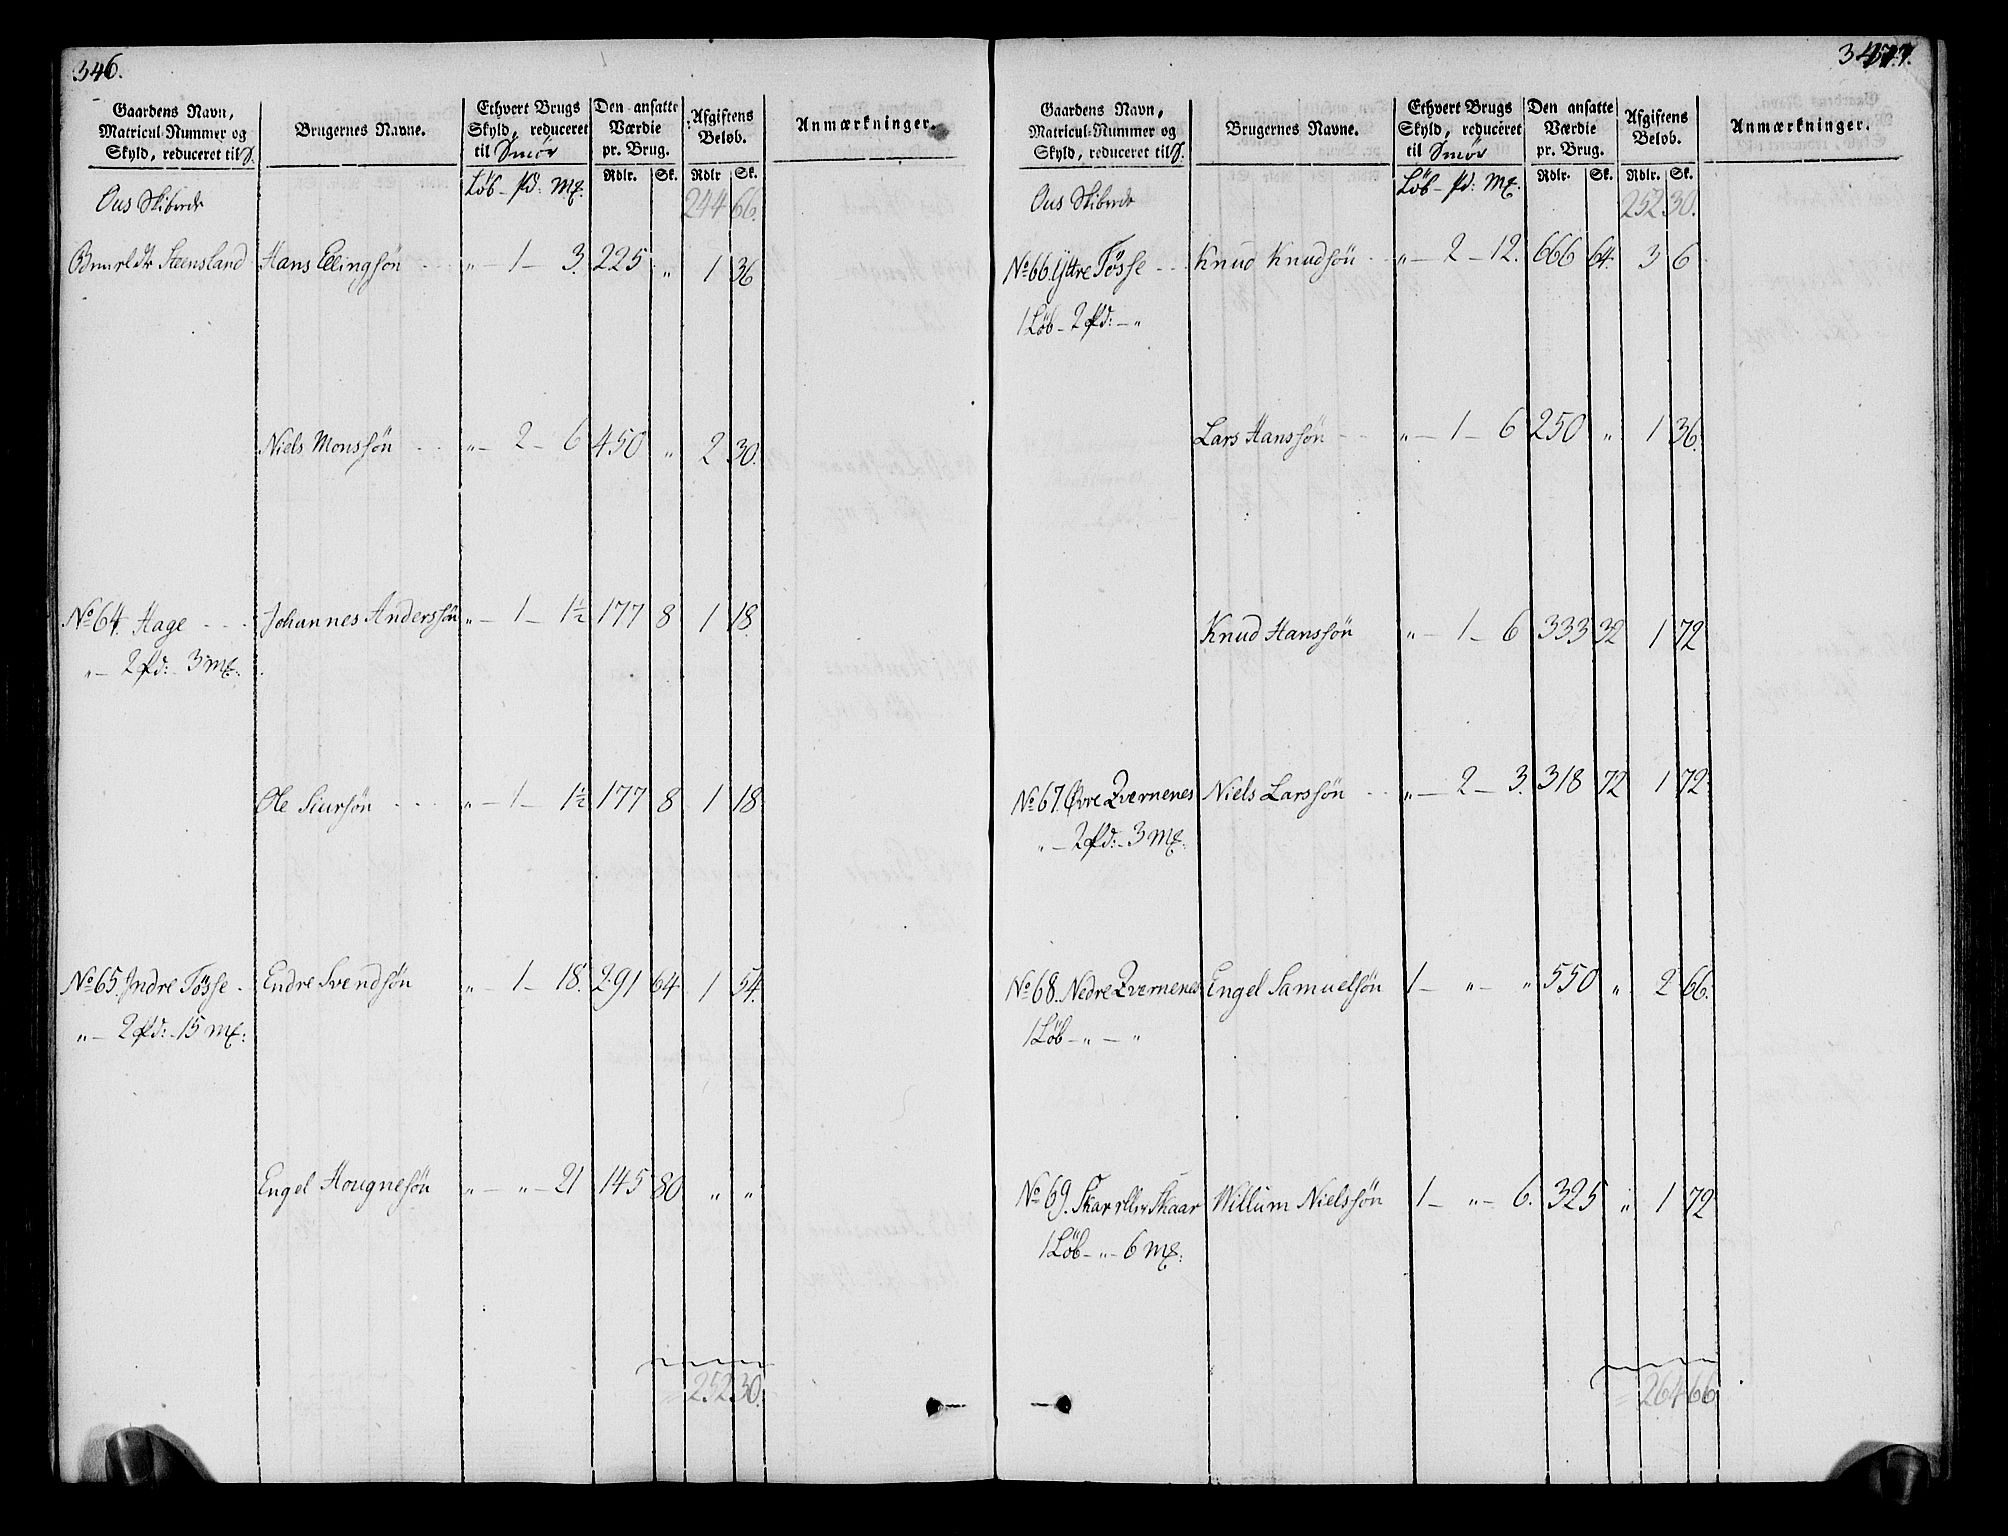 346.
Gaardens Navn,
Matricul-Nummer og
Skyld, reduceret til S.
Brugernes Navne.
Ethvert Brugs
Skyld, reduceret
til Smör
Den ansatte
Værdie
pr. Brug.
Afgiftens
Beløb.
Anmærkninger.
Løb - pd: mk: Rdlr. Sk. Rdlr Sk.
Ous Skibrede 244 66.
Steensland Hans Ellingsøn „ - 1 - 3. 225 „ 1 36
Niels Monssøn „ - 2 - 6 450 „ 2 30.
No 64. Hage Johannes Anderssøn „ - 1 - 1½ 177 8 1 18
„ - 2 pd: 3 mk:
Ole Siursøn „ - 1 - 1½ 177 8 1 18
No 65. Indre Tösse Endre Svendsøn „ - 1 - 18. 291 64 1 54.
„ - 2 pd: - 15 mk:
Engel Hougnesøn „ - „ - 21 145 80 „ „
252 30.
347.
Gaardens Navn,
Matricul-Nummer og
Skyld, reduceret til S.
Brugernes Navne.
Ethvert Brugs
Skyld, reduceret
til Smör
Den ansatte
Værdie
pr. Brug.
Afgiftens
Beløb.
Anmærkninger.
Løb - pd: mk: Rdlr. Sk. Rdlr. Sk.
Ous Skibrede 252 30.
No 66. Yttre Tösse Knud Knudsøn „ - 2 - 12. 666 64. 3 6
1 Løb - 2 pd: - „
Lars Hanssøn „ - 1 - 6 250 „ 1 36.
Knud Hanssøn „ - 1 - 6 333 32 1 72
No 67. Øvre Qvernenes Niels Larssøn „ - 2 - 3. 318 72 1 72
„ - 2 pd: - 3 mk:
No 68. Nedre Qvernenes Engel Samuelsøn 1 - „ - „ 550 „ 2 66.
1 Løb - „ - „
No 69. Skar eller Skaar Willum Nielssøn 1 - „ - 6. 325 „ 1 72
1 Løb - „ - 6 mk:
264 66